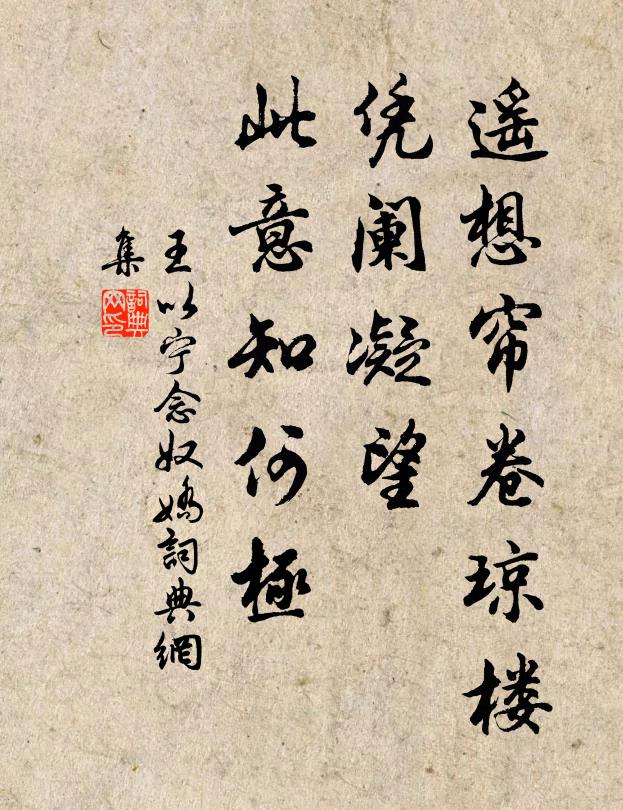 遥想帘卷琼楼
凭阑凝望
此意知何极
王以宁念奴娇詞典網
集
詞典
网印